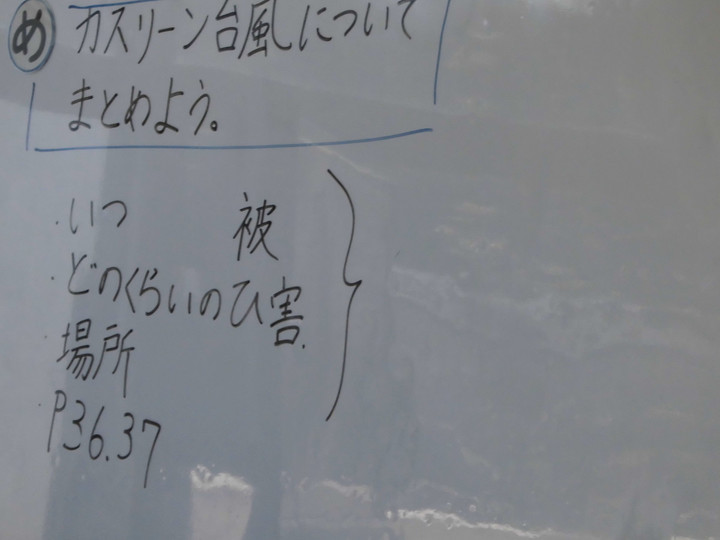 め カスリーン台風について
まとめよう。
・いつ
被
・どのくらいのひ害.
・場所
・P36.37